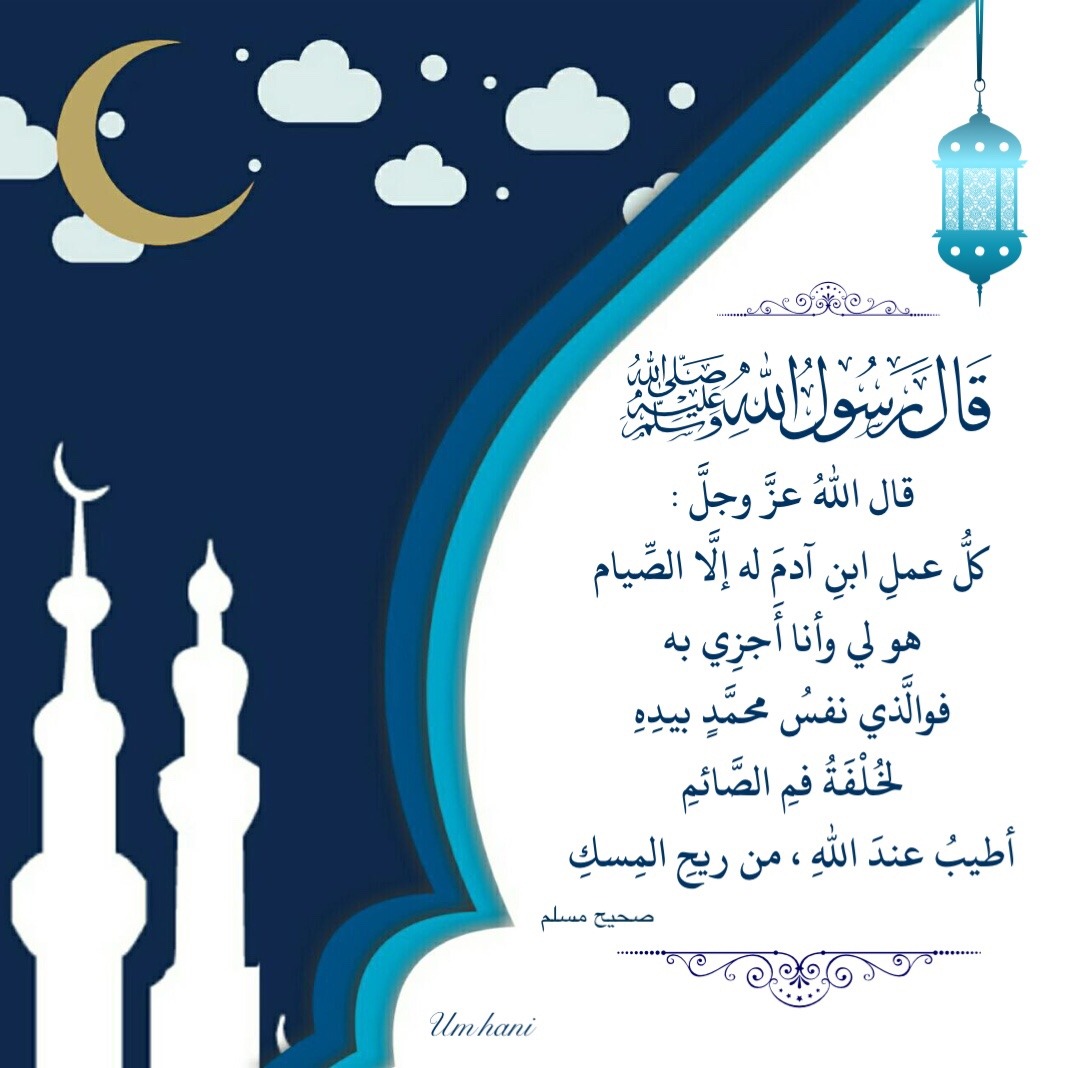 قَالَ رَسُولُ اللهِ صَلَّى اللهُ عَلَيْهِ وَسَلَّمَ
قال اللهُ عزَّ وجلَّ :
كلُّ عملِ ابنِ آدمَ له إلَّا الصِّيام
هو لي وأنا أَجزِي به
فوالَّذي نفسُ محمَّدٍ بيدِهِ
لَخُلْفَةُ فمِ الصَّائمِ
أطيبُ عندَ اللهِ ، من ريحِ المِسكِ
صحيح مسلم
Umhani